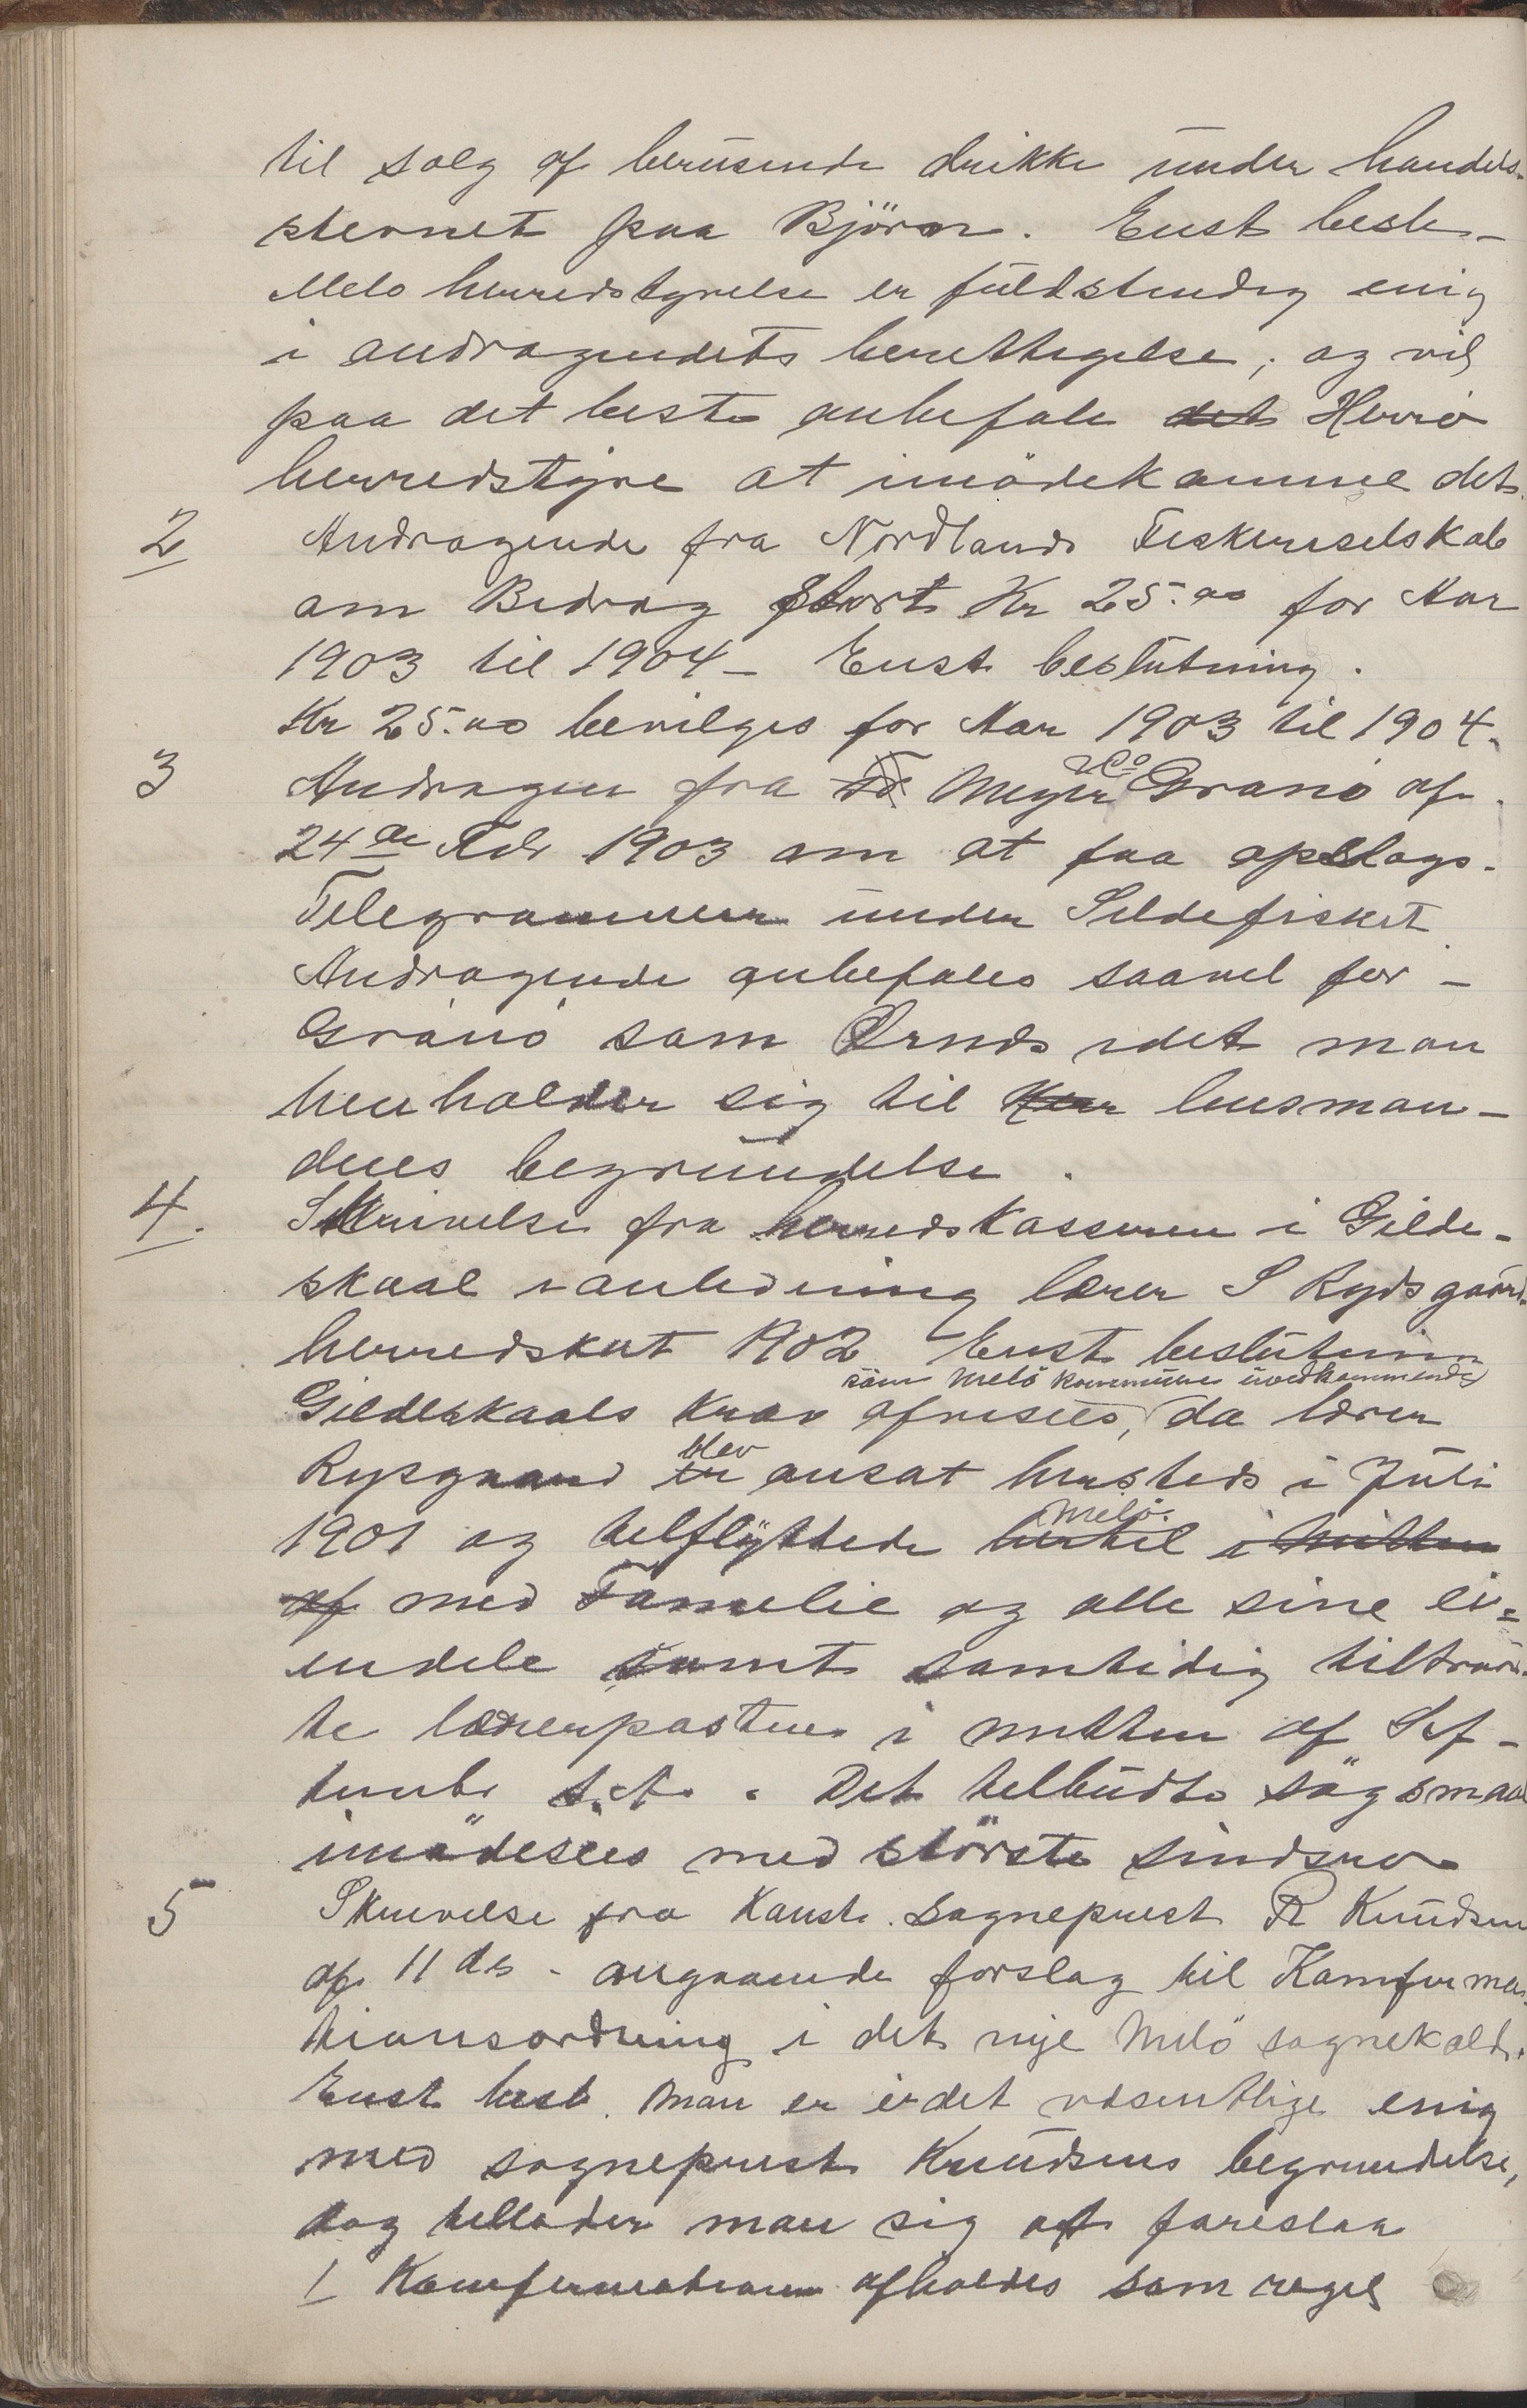 til salg af berusende drikke under handels-
stevnet paa Björn. Enst besl.-
Melö herredstyrelse er fuldstendig enig
i andragendets berettigelse, og vil
paa det beste anbefale det Herrö
herredstyre at imödekomme det.
2 Andragende fra Nordlands Fiskeriselskab
om Bidrag stort Kr 25.00 for Aar
1903 til 1904 - Enst beslutning.
Kr 25.00 bevilges for Aar 1903 til 1904.
3 Andragen fra Meyer &Co Grönö af
24de Febr 1903 om at faa opslags-
Telegrammer under Sildefisket
Andragende anbefales saavel for -
Grönö som Ørnes idet man
henholder sig til lensman-
dens begrundelse.
4. Skrivelse fra herredskasseren i Gilde-
skaal i anledning lærer S Rydsgaards
herredskat 1902 Enst beslutning
som Melö kommune uvedkommende
Gildeskaals Krav afvises, da lærer
blev
Rysgaard er ansat hersteds i Juli
Melö.
1901 og tilflyttede hertil i midten
af med Familie og alle sine ei-
endele samt samtidig tiltraad-
te lærerposten i midten af Sep-
tembr s.A. Det tilbudte sögsmaal
imödesees med störste sindsro
5 Skrivelse fra Konst. Sogneprest R Knudsen
af 11 ds - angaaende forslag til Konfirma-
tionsordning i det nye Melö sognekald.
Enst besl. Man er i det vesentlige enig
med sogneprest Knudsens begrundelse,
dog tillader man sig at foreslaa
1 Konfirmationen afholdes som regel